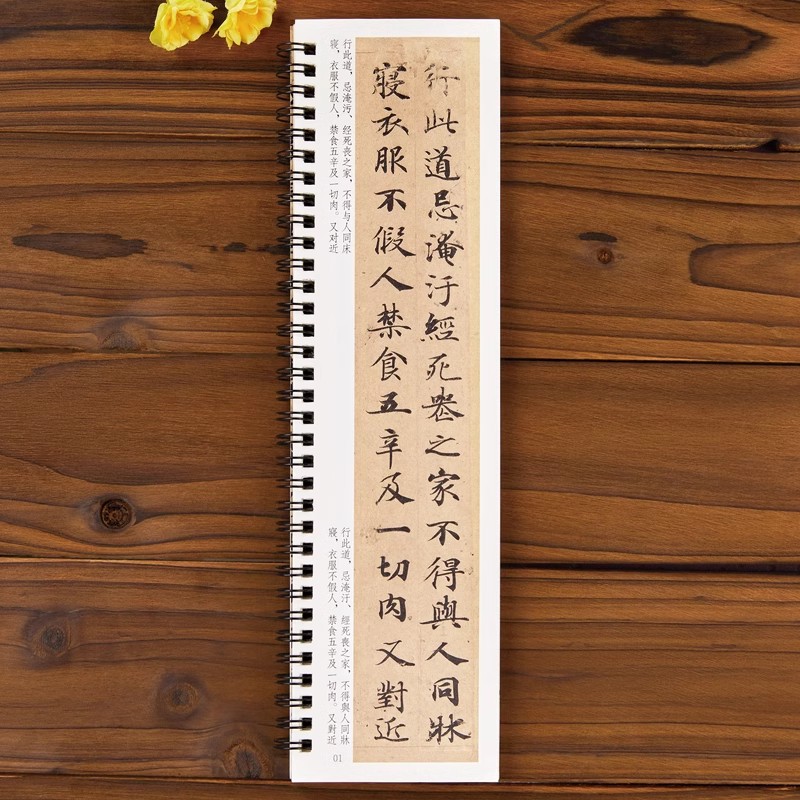 行此道忌淹汙經死喪之家不得與人同牀
寢衣服不假人禁食五辛及一切肉又對近
行此道，忌淹污、经死丧之家，不得与人同床
寝，衣服不假人，禁食五辛及一切肉。又对近
行此道，忌淹汙、經死喪之家，不得與人同牀
寢，衣服不假人，禁食五辛及一切肉。又對近
01